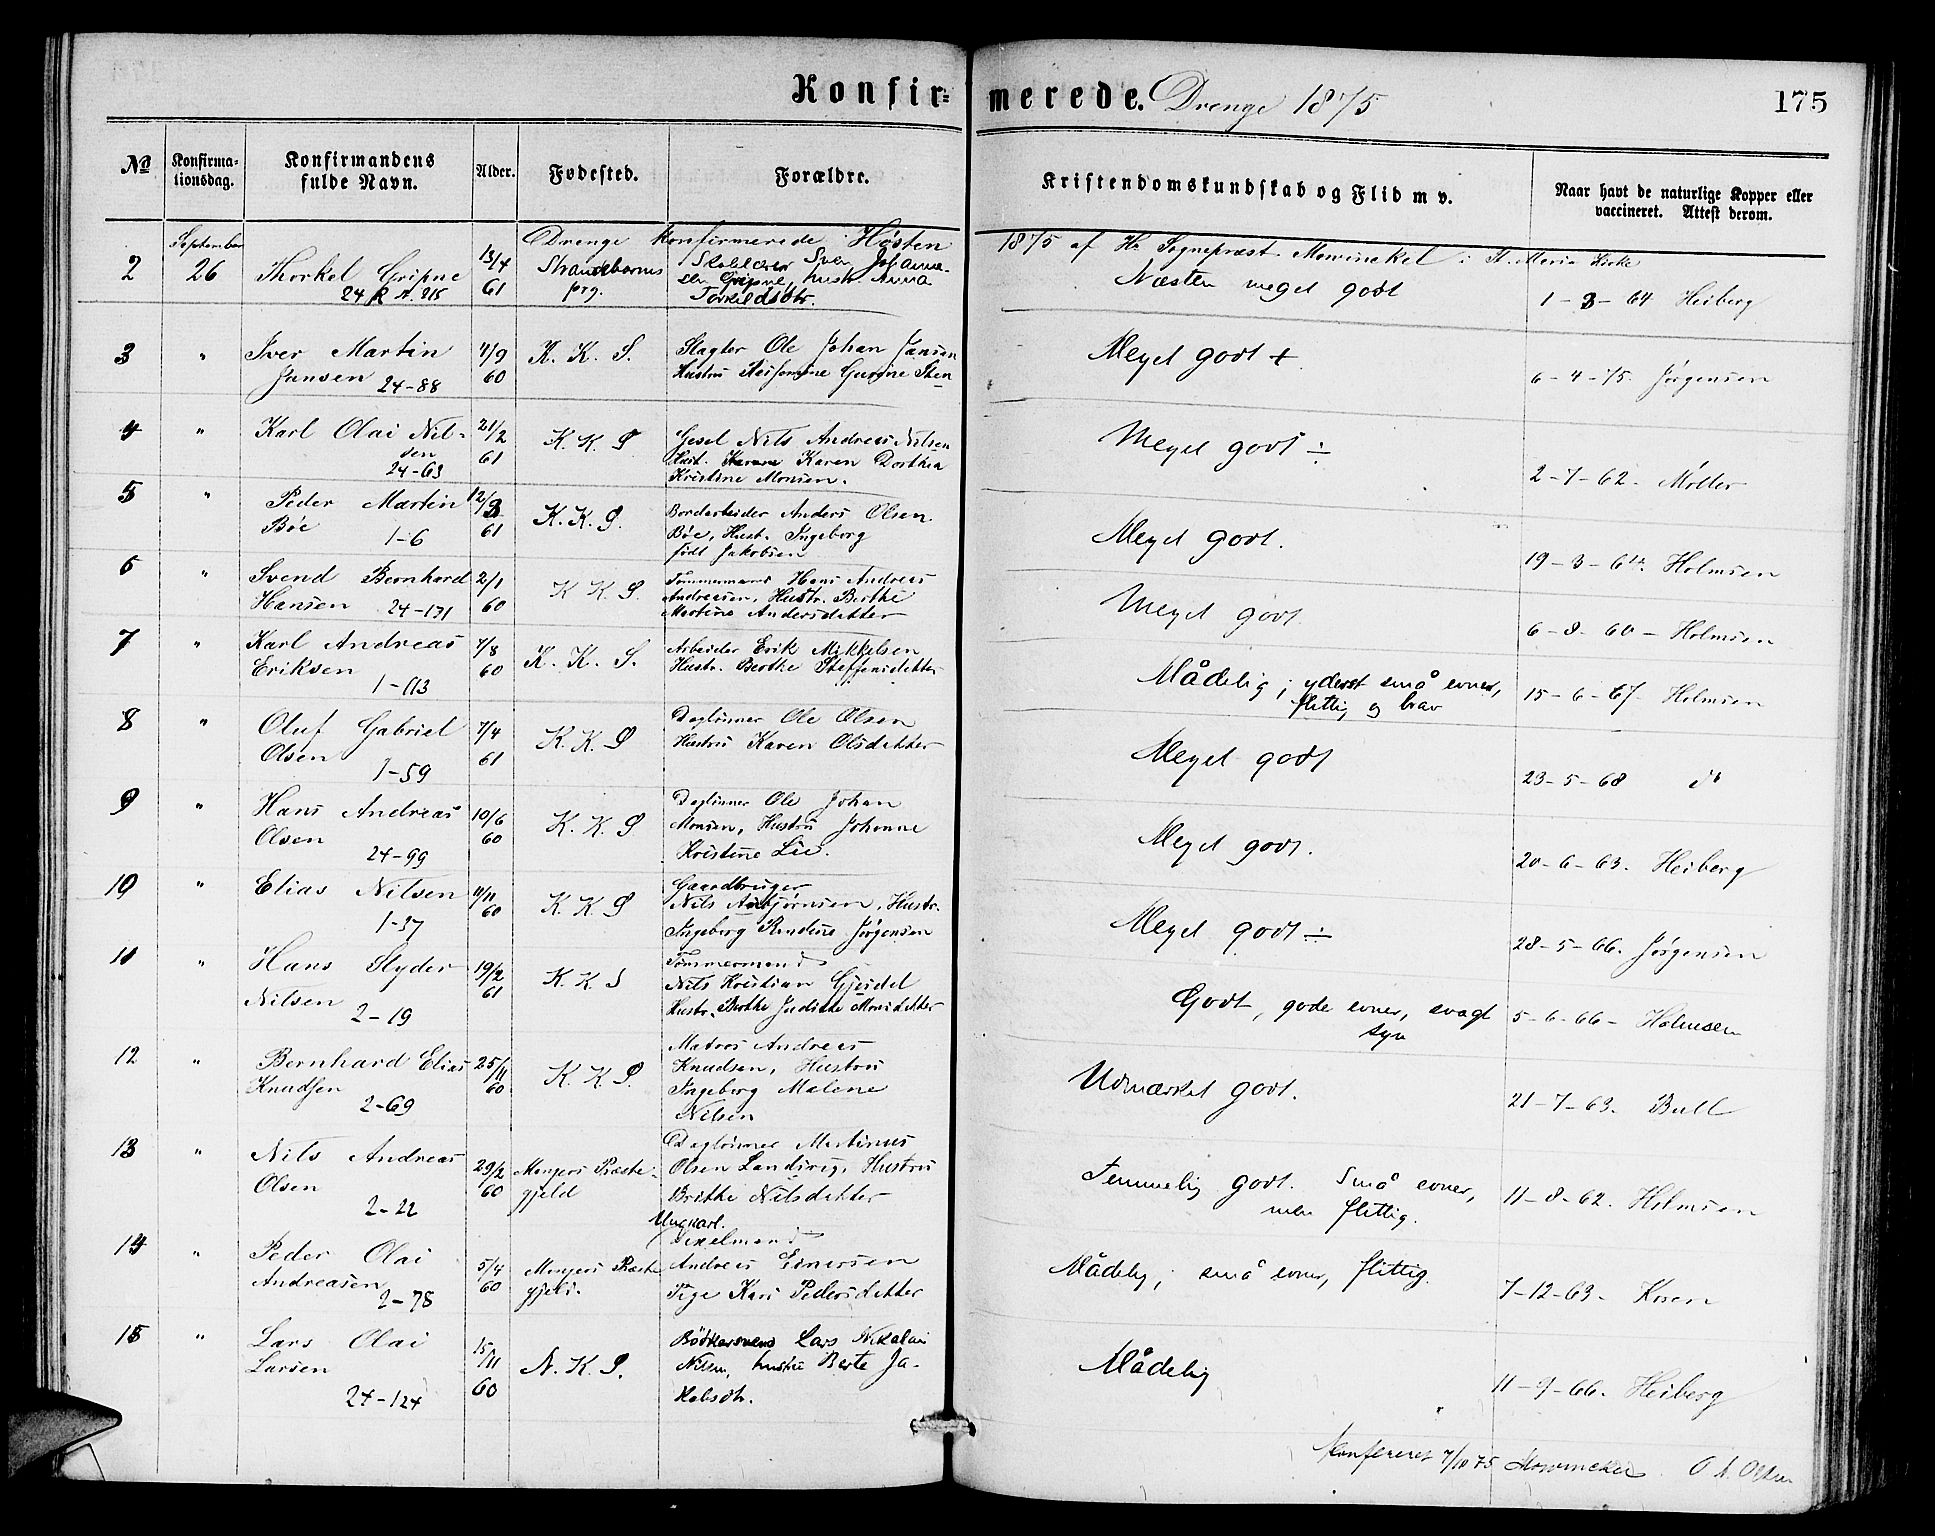 Konfirmerede. Drenge 1875
175
No
Konfirmationsdag.
Konfirmandens fulde Navn.
Alder.
Fødested.
Forældre.
Kristendomskundskab og Flid m v.
Naar havt de naturlige Kopper eller vaccineret. Attest derom.
Drenge konfirmerede Høsten 1875 af Hr Sognepræst Mowinckel i St. Maria Kirke
2 September 26 Thorkel Gripne 13/4 61 Strandebarms
24 A. 215 prg. hustr. Anna
Torkildsdtr.
Næsten meget godt 1-8-64 Heiberg
3 " Iver Martin 4/9 K. K. S. Slagter Ole Johan Jansen
Jansen 24-88 60 Hustru Gurine Sten
Meget godt + 6-4-75. Jørgensen
4 " Karl Olai Nil- 21/2 K. K. S Gesel Nils Andreas Nilsen
sen 61 Hust. Karen Dorthea
24-63 Kristine Monsen.
Meget godt ÷ 2-7-62- Møller
5 " Peder Martin 12/3 K. K. S. Bordarbeider Anders Olsen
Bøe 1-6 61 Bøe, Hust. Ingeborg
født Jakobsen
Meget godt. 19-3-62. Holmsen
6 " Svend Bernhard 2/1 K K. S. Tømmermand Hans Andreas
Hansen 24-131 60 Andreasen, Hustr. Berthe
Martine Andersdatter
Meget godt. 6-8-60- Holmsen
7 " Karl Andreas 7/8 K. K. S. Arbeider Erik Mikkelsen
Eriksen 1-113 60 Hustr. Berthe Steffensdatter
Mådelig; yderst små evner, 15-6-67- Holmsen
flittig og brav
8 " Oluf Gabriel 7/4 K. K. S Daglønner Ole Olsen
Olsen 1-59 61 Hustru Karen Olsdatter
Meget godt 23-5-68 do
9 " Hans Andreas 10/6 K. K. S Daglønner Ole Johan
Olsen 60 Monsen, Hustru Johanne
24-99 Kristine Lie.
Meget godt. 20-6-63. Heiberg
10 " Elias Nilsen 11/11 K. K S Gaardbruger
1-37 60 Nils Asbjørnsen, Hustr.
Ingeborg Rendine Jørgensen
Meget godt ÷ 28-5-66. Jørgensen
11 " Hans Slyder 19/2 K. K. S Tømmermand
Nilsen 61 Nils Kristian Gjeidel
2-19 Hustr. Berthe Juditte Monsdatter
Godt, gode evner, svagt 5-6-66- Holmsen
syn
12 " Bernhard Elias 25/11 K. K S. Matros Andreas
Knudsen 60 Knudsen, Hustru
2-69 Ingeborg Malene
Nilsen
Udmærket godt. 21-7-63. Bull
13 " Nils Andreas 29/2 Mangers Præste- Daglønner Martinus
Olsen 60 gjeld Olsen Landsvig, Hustru
2-22 Brithe Nilsdatter
Temmelig godt. Små evner, 11-8-62. Holmsen
men flittig.
14 " Peder Olai 5/4 Mangers Præste Ungkarl.
Andreasen 60 gjeld. Andreas Einersen
2-78 Pige Kari Pedersdatter
Mådelig; små evner, flittig. 7-12-63- Koren
15 " Lars Olai 15/11 N. K. S. Bødkersvend Lars Nikolai
Larsen 60 Nilsen, hustru Berte Ja-
24-124 kobsdtr.
Mådelig 11-9-66. Heiberg
Konfereret 7/10 75 Mowinckel O A. Olsen